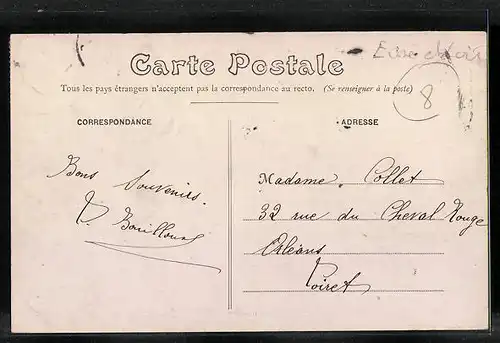 Eure et Loir
Carte Postale
Tous les pays étrangers n'acceptent pas la correspondance au recto. (Se renseigner à la poste)
8
CORRESPONDANCE
Bons Souvenirs.
ADRESSE
Madame Collet
32 rue du Cheval Rouge
Orléans
Loiret